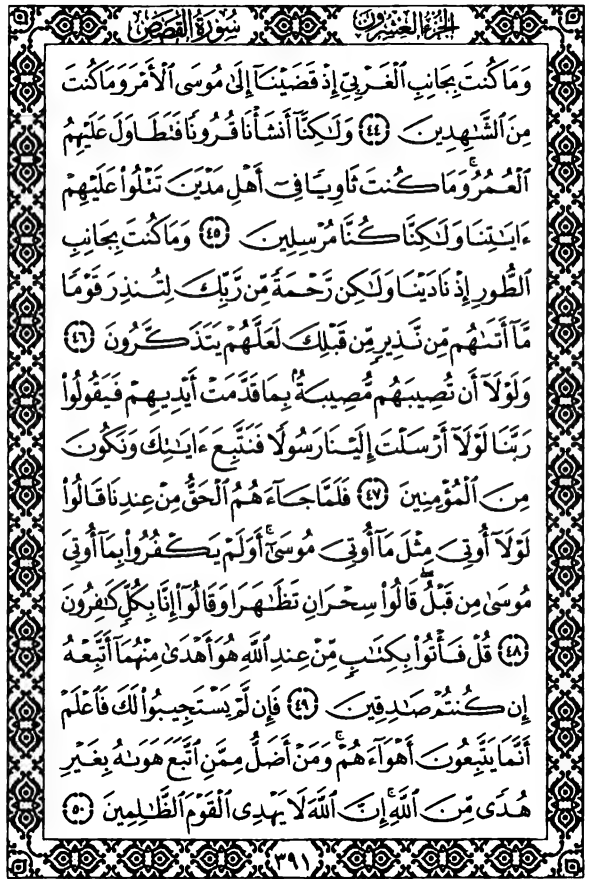 الجزء العشرون
سورة القصص
وَمَا كُنتَ بِجَانِبِ ٱلْغَرْبِيِّ إِذْ قَضَيْنَآ إِلَىٰ مُوسَى ٱلْأَمْرَ وَمَا كُنتَ
مِنَ ٱلشَّٰهِدِينَ ﴿٤٤﴾ وَلَٰكِنَّآ أَنشَأْنَا قُرُونًا فَتَطَاوَلَ عَلَيْهِمُ
ٱلْعُمُرُ ۚ وَمَا كُنتَ ثَاوِيًا فِىٓ أَهْلِ مَدْيَنَ تَتْلُوا۟ عَلَيْهِمْ
ءَايَٰتِنَا وَلَٰكِنَّا كُنَّا مُرْسِلِينَ ﴿٤٥﴾ وَمَا كُنتَ بِجَانِبِ
ٱلطُّورِ إِذْ نَادَيْنَا وَلَٰكِن رَّحْمَةً مِّن رَّبِّكَ لِتُنذِرَ قَوْمًا
مَّآ أَتَىٰهُم مِّن نَّذِيرٍ مِّن قَبْلِكَ لَعَلَّهُمْ يَتَذَكَّرُونَ ﴿٤٦﴾
وَلَوْلَآ أَن تُصِيبَهُم مُّصِيبَةٌۢ بِمَا قَدَّمَتْ أَيْدِيهِمْ فَيَقُولُوا۟
رَبَّنَا لَوْلَآ أَرْسَلْتَ إِلَيْنَا رَسُولًا فَنَتَّبِعَ ءَايَٰتِكَ وَنَكُونَ
مِنَ ٱلْمُؤْمِنِينَ ﴿٤٧﴾ فَلَمَّا جَآءَهُمُ ٱلْحَقُّ مِنْ عِندِنَا قَالُوا۟
لَوْلَآ أُوتِىَ مِثْلَ مَآ أُوتِىَ مُوسَىٰٓ ۚ أَوَلَمْ يَكْفُرُوا۟ بِمَآ أُوتِىَ
مُوسَىٰ مِن قَبْلُ ۖ قَالُوا۟ سِحْرَانِ تَظَٰهَرَا وَقَالُوٓا۟ إِنَّا بِكُلٍّ كَٰفِرُونَ
﴿٤٨﴾ قُلْ فَأْتُوا۟ بِكِتَٰبٍ مِّنْ عِندِ ٱللَّهِ هُوَ أَهْدَىٰ مِنْهُمَآ أَتَّبِعْهُ
إِن كُنتُمْ صَٰدِقِينَ ﴿٤٩﴾ فَإِن لَّمْ يَسْتَجِيبُوا۟ لَكَ فَٱعْلَمْ
أَنَّمَا يَتَّبِعُونَ أَهْوَآءَهُمْ ۚ وَمَنْ أَضَلُّ مِمَّنِ ٱتَّبَعَ هَوَىٰهُ بِغَيْرِ
هُدًى مِّنَ ٱللَّهِ ۚ إِنَّ ٱللَّهَ لَا يَهْدِى ٱلْقَوْمَ ٱلظَّٰلِمِينَ ﴿٥٠﴾
٣٩١